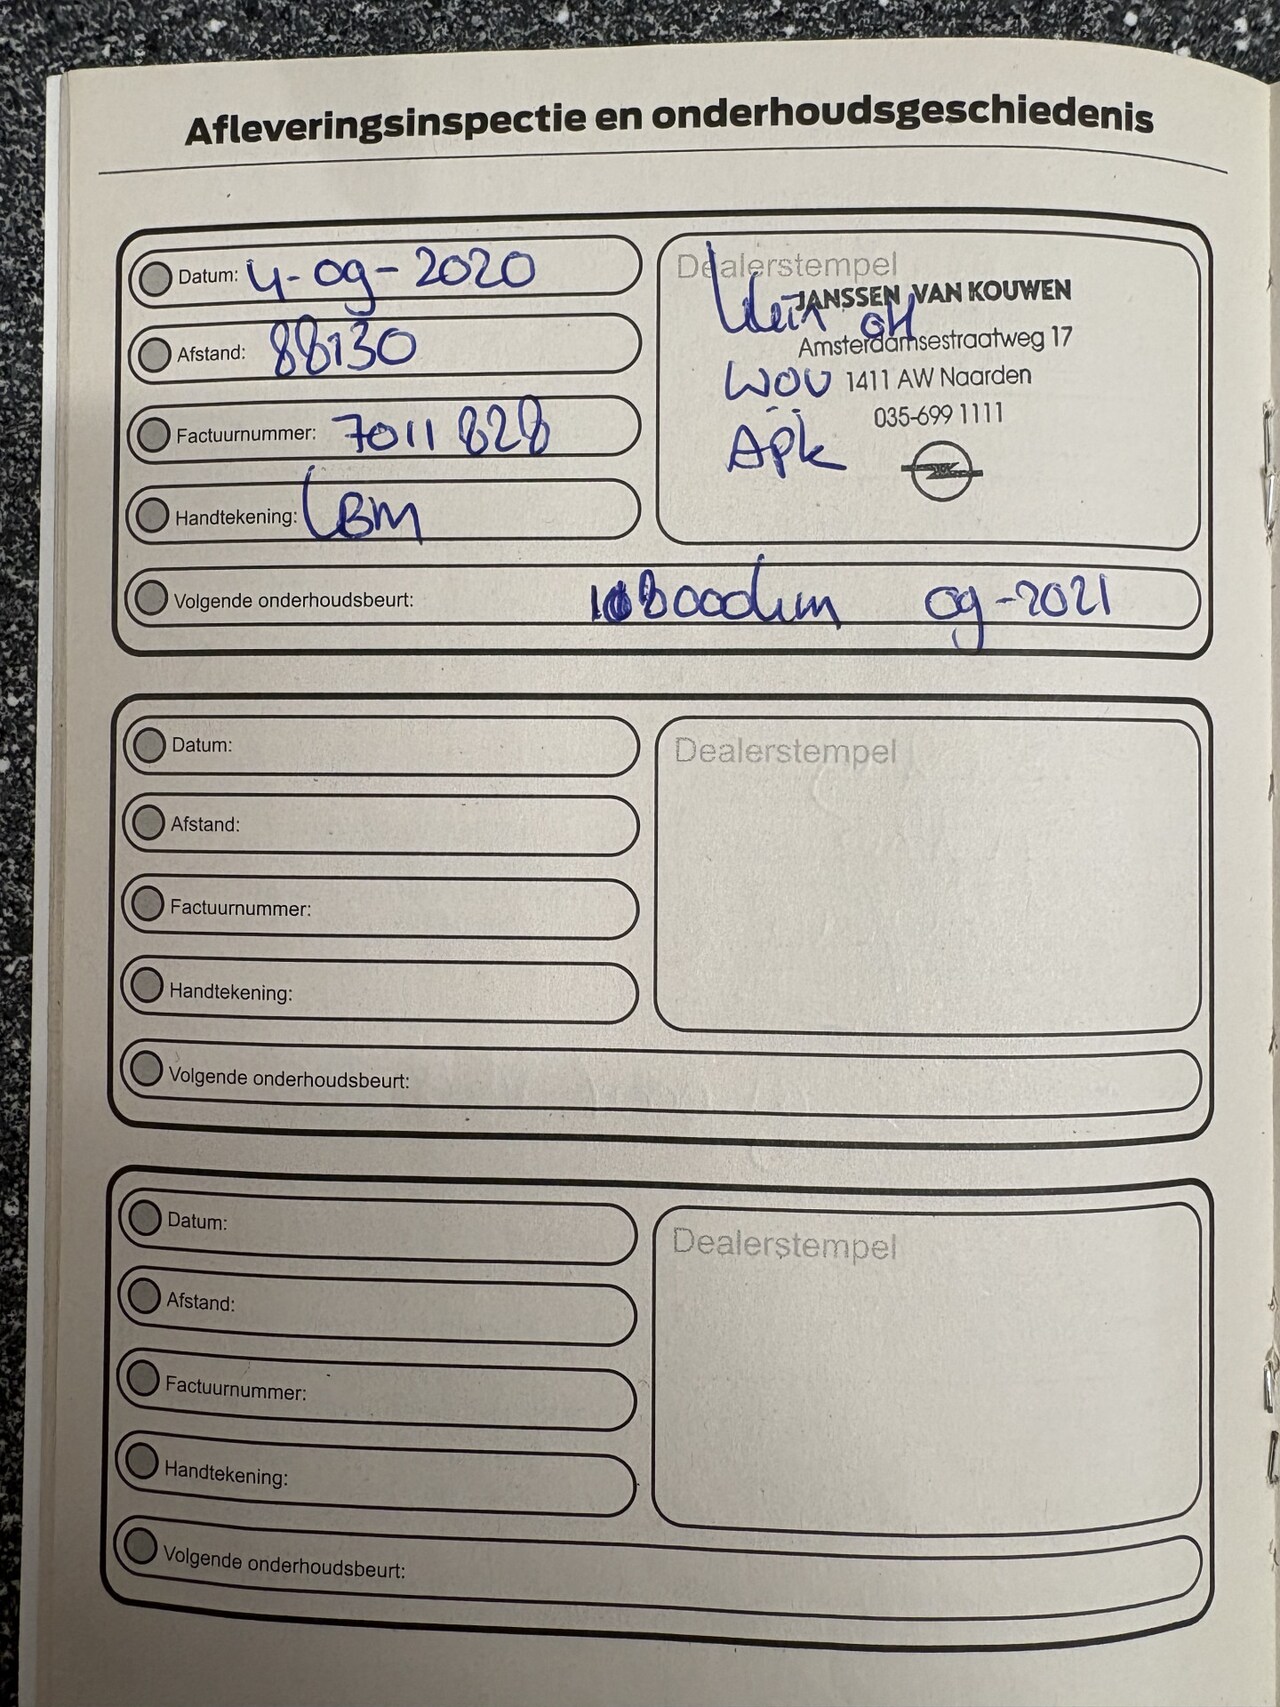 Afleveringsinspectie en onderhoudsgeschiedenis
Datum: 4-09-2020
Afstand: 88130
Factuurnummer: 7011828
Handtekening: BM
Volgende onderhoudsbeurt: 108000km 09-2021
Dealerstempel
JANSSEN VAN KOUWEN
Klein OH
Amsterdamsestraatweg 17
WOU 1411 AW Naarden
035-699 1111
Apk
Datum:
Afstand:
Factuurnummer:
Handtekening:
Volgende onderhoudsbeurt:
Dealerstempel
Datum:
Afstand:
Factuurnummer:
Handtekening:
Volgende onderhoudsbeurt:
Dealerstempel